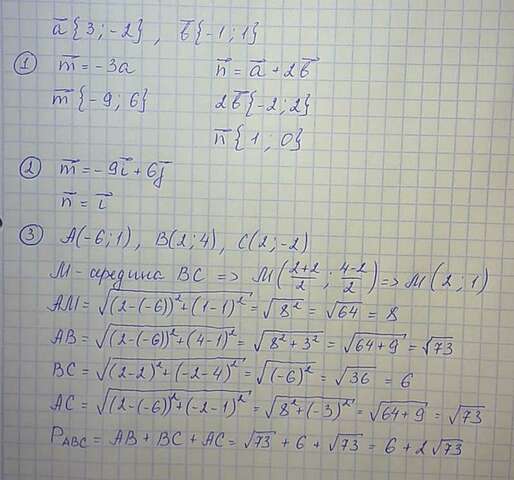 a⃗ {3; -2}, b⃗ {-1; 1}
① m⃗ = -3a n⃗ = a⃗ + 2b⃗
m⃗ {-9; 6} 2b⃗ {-2; 2}
n⃗ {1; 0}
② m⃗ = -9i⃗ + 6j⃗
n⃗ = i⃗
③ A(-6; 1), B(2; 4), C(2; -2)
M - средина BC => M((2+2)/2; (4-2)/2) => M(2; 1)
AM = √((2-(-6))² + (1-1)²) = √(8²) = √64 = 8
AB = √((2-(-6))² + (4-1)²) = √(8² + 3²) = √(64+9) = √73
BC = √((2-2)² + (-2-4)²) = √((-6)²) = √36 = 6
AC = √((2-(-6))² + (-2-1)²) = √(8² + (-3)²) = √(64+9) = √73
P_ABC = AB + BC + AC = √73 + 6 + √73 = 6 + 2√73